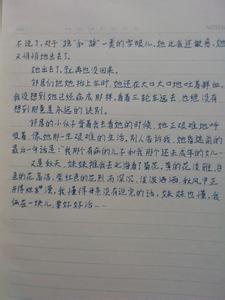 不说了。对于“跑”和“踩”一类的字眼儿,她比我还敏感。她
又悄悄地出去了。
她出去了,就再也没回来。
邻居们把她抬上车时,她还在大口大口地吐着鲜血。
我没想到她已经病成那样。看着三轮车远去,也绝没有
想到那竟是永远的诀别。
邻居的小伙子背着我去看她的时候,她正艰难地呼
吸着,像她那一生艰难的生活。别人告诉我,她昏迷前的
最后一句话是:“我那个有病的儿子和我那个还未成年的女儿…
又是秋天,妹妹推我去北海看了菊花。黄的花淡雅,白
色的花高洁,紫红色的花热烈而深沉,泼泼洒洒,秋风中正
开得烂漫。我懂得母亲没有说完的话。妹妹也懂。我
俩在一块儿,要好好活…